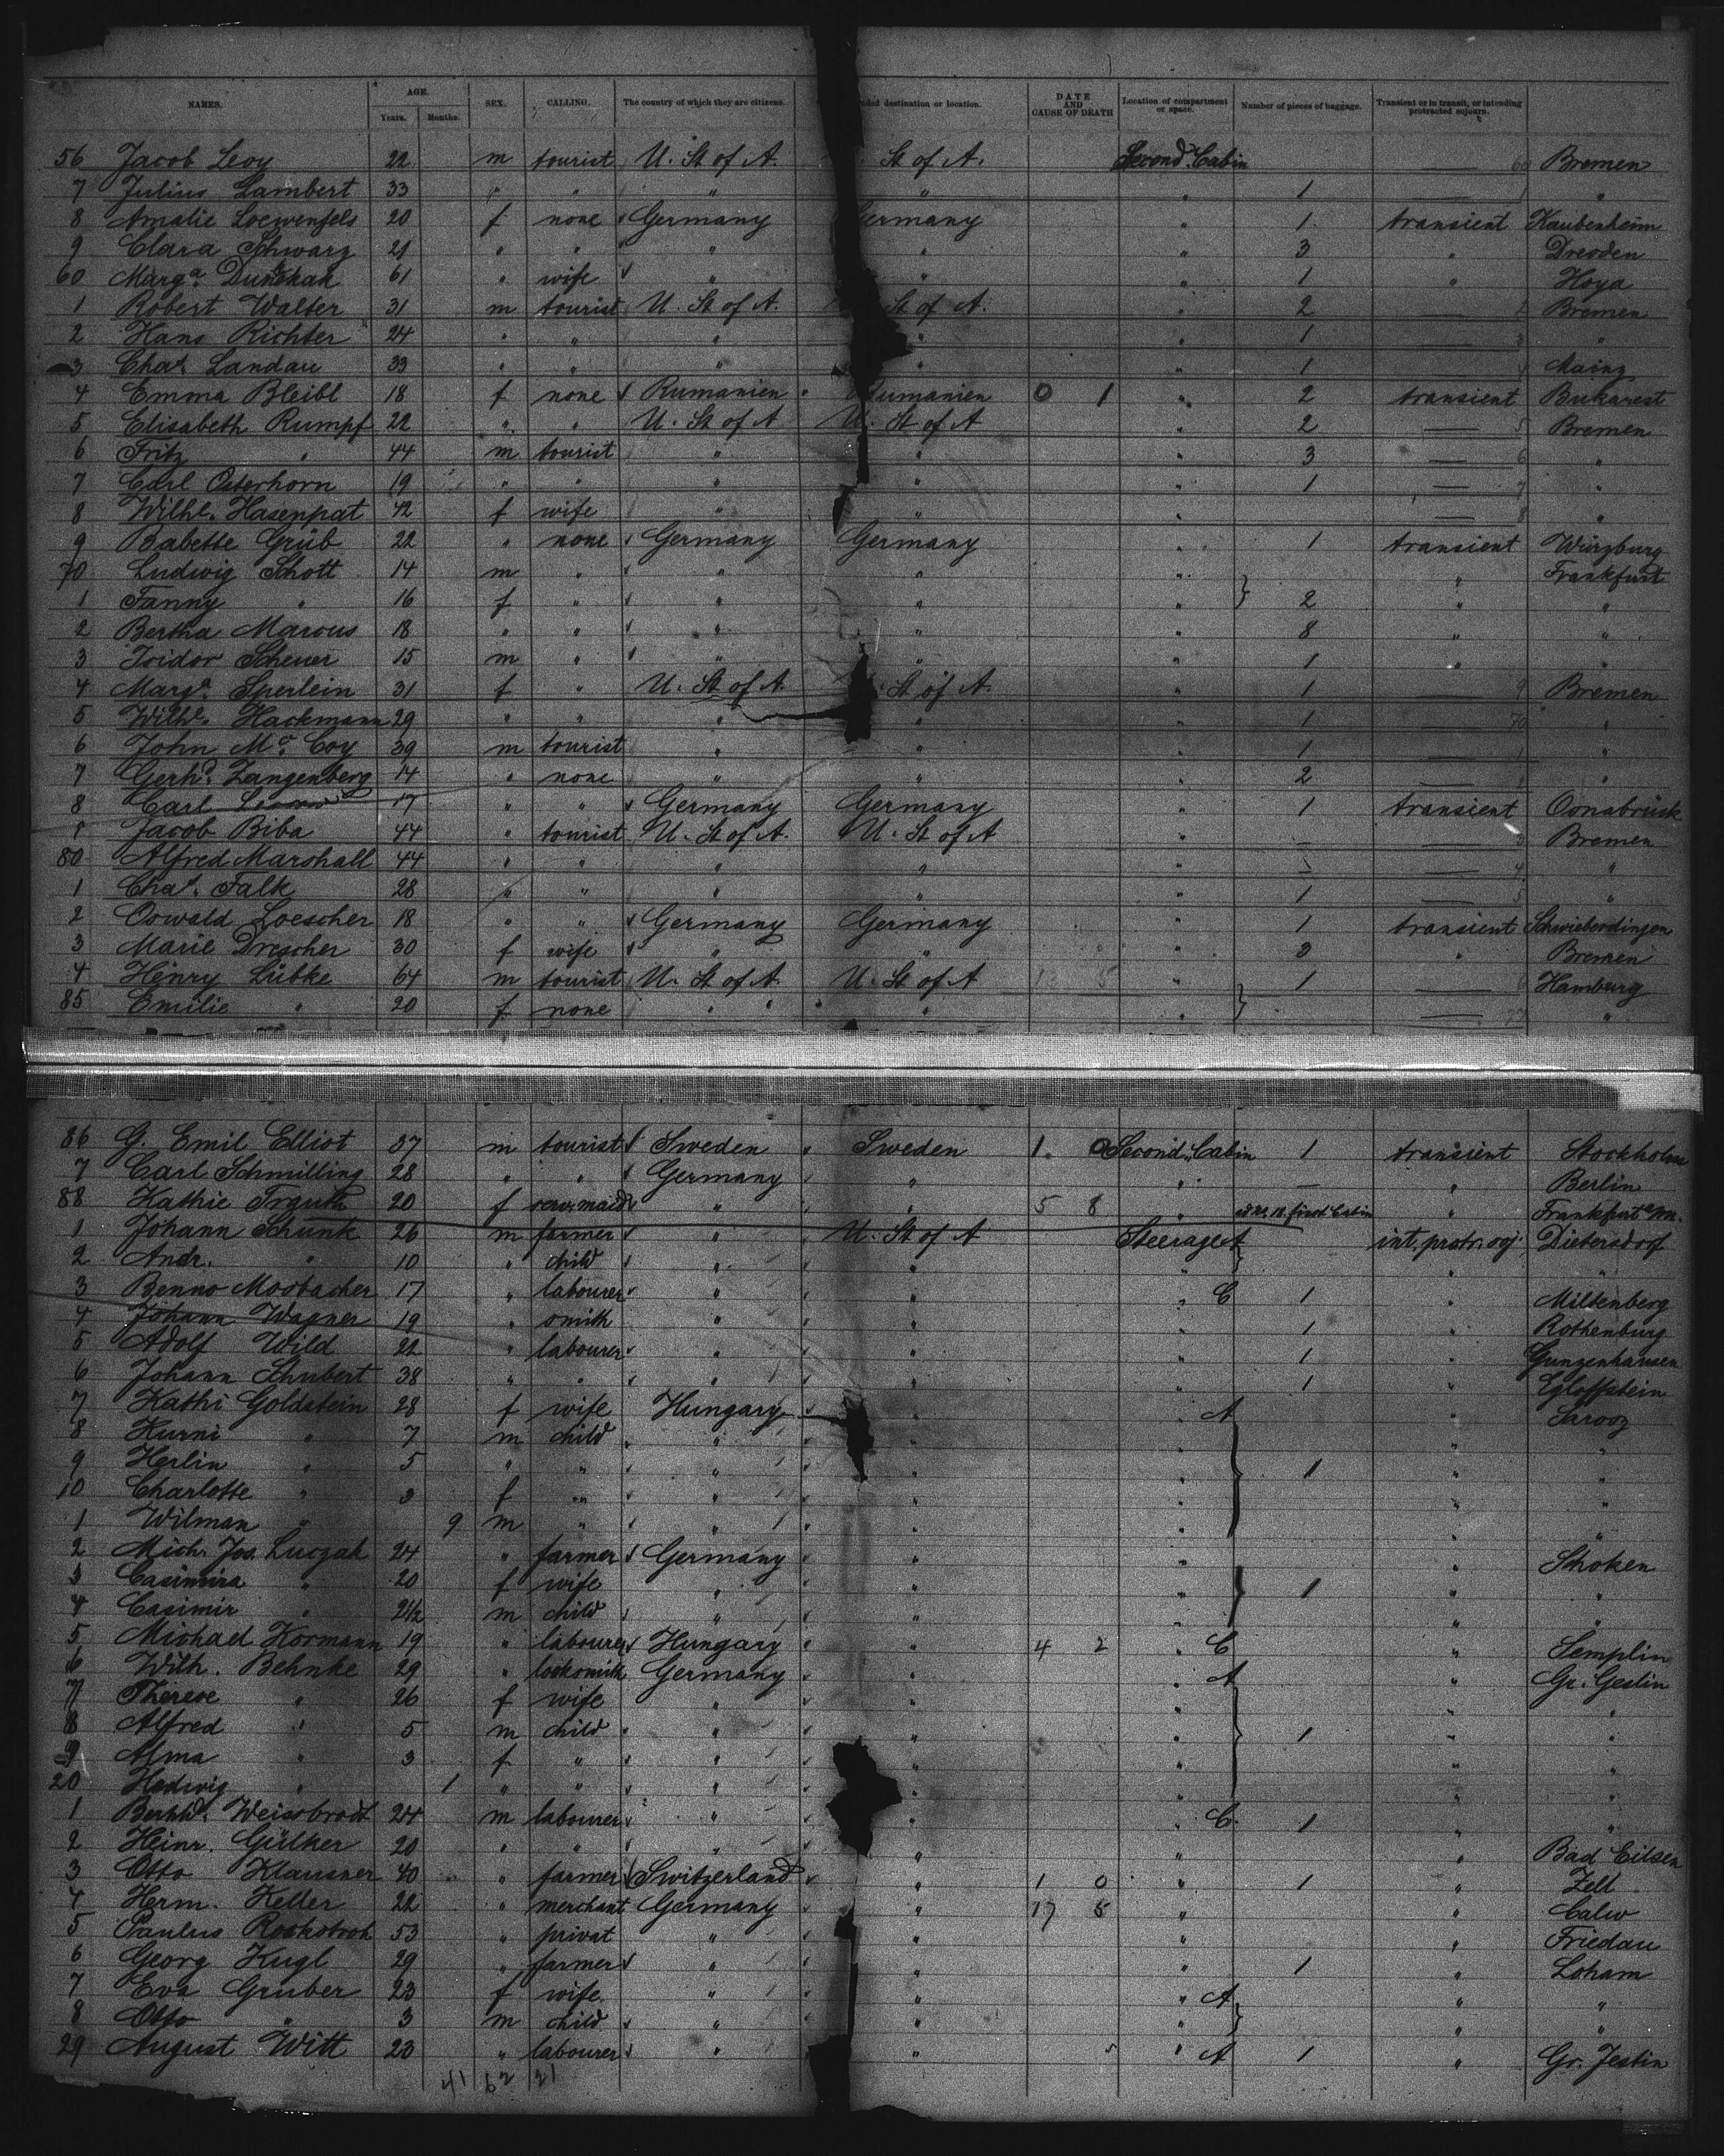 NAMES. AGE. Years. Months. SEX. CALLING. The country of which they are citizens. nded destination or location. DATE AND CAUSE OF DEATH Location of compartment or space. Number of pieces of baggage. Transient or in transit, or intending protracted sojourn.
56 Jacob Levy 22 m tourist U. St of A. St of A. Second Cabin — 60 Bremen
7 Julius Lambert 33 " " " " " 1 — 1 "
8 Amalie Loewenfels 20 f none Germany Germany " 1 transient Kaubenheim
9 Clara Schwarz 21 " " " " " 3 " Dresden
60 Marga. 61 " wife " " " 1 " Hoya
1 Robert Walter 31 m tourist U. St of A. St of A. " 2 — 2 Bremen
2 Hans Richter 24 " " " " " 1 — 3 "
3 Chas. Landau 33 " " " " " 1 — 4 Mainz
4 Emma Bleibl 18 f none Rumanien Rumanien 0 1 " 2 transient Bukarest
5 Elisabeth Rumpf 22 " " U. St of A U. St of A " 2 — 5 Bremen
6 Fritz " 44 m tourist " " " 3 — 6 "
7 Carl Osterhorn 19 " " " " " 1 — 7 "
8 Wilhe. Hasenpat 42 f wife " " " — 8 "
9 Babette Grüb 22 " none Germany Germany " 1 transient Würzburg
70 Ludwig Schott 14 m " " " " " Frankfurt
1 Fanny " 16 f " " " " 2 " "
2 Bertha Marcus 18 " " " " " 8 " "
3 Isidor Scheuer 15 m " " " " 1 " "
4 Marge. Sperlein 31 f " U. St of A. St of A. " 1 — 9 Bremen
5 Wilhe. Hackmann 29 " " " " " 1 — 70 "
6 John Mc. Coy 39 m tourist " " " 1 — 1 "
7 Gerhd. Zangenberg 14 " none " " " 2 — "
8 Carl 17 " " Germany Germany " 1 transient Osnabrück
Jacob Biba 44 " tourist U. St of A. U. St of A " — — 3 Bremen
80 Alfred Marshall 44 " " " " " — — 4 "
1 Chas. Falk 28 " " " " " 1 — 5 "
2 Oswald Loescher 18 " " Germany Germany " 1 transient Schwieberdingen
3 Marie Drescher 30 f wife " " " 3 " Bremen
4 Henry Lübke 64 m tourist U. St of A U. St of A 13 5 " 1 — 6 Hamburg
85 Emilie " 20 f none " " " — 77 "
86 G. Emil Elliot 37 m tourist Sweden Sweden 1. 0 Second Cabin 1 transient Stockholm
7 Carl Schmilling 28 " " Germany " " — " Berlin
88 Kathie 20 f serv. maid " " 5 8 " first Cabin " Frankfurt a/m.
1 Johann Schunk 26 m farmer " U. St of A Steerage A int. protr. soj. Dietersdorf
2 Andr. " 10 " child " " " " "
3 Benno Mosbacher 17 " labourer " " " C 1 " Miltenberg
4 Johann Wagner 19 " smith " " " 1 " Rothenburg
5 Adolf Wild 22 " labourer " " " 1 " Gunzenhausen
6 Johann Schubert 38 " " " " " 1 " Egloffstein
7 Kathi Goldstein 28 f wife Hungary " A " Sarosz
8 Kurni " 7 m child " " " " "
9 Herlin " 5 " " " " " 1 " "
10 Charlotte " 3 f " " " " " "
1 Wilman " 9 m " " " " " "
2 Mich. Jos. Luczak 24 " farmer Germany " " " Schoken
3 Casimira " 20 f wife " " " 1 " "
4 Casimir " 2 1/2 m child " " " " "
5 Michael Kormann 19 " labourer Hungary " 4 2 " C " Semplin
6 Wilh. Behnke 29 " locksmith Germany " " A " Gr. Gestin
7 Therese " 26 f wife " " " " "
8 Alfred " 5 m child " " " 1 " "
9 Alma " 3 f " " " " " "
20 Hedwig " 1 " " " " " " "
1 Berthd. Weissbrodt 24 m labourer " " " C. 1 " "
2 Heinr. Gülker 20 " " " " " " Bad Eilsen
3 Otto Klausner 40 " farmer Switzerland " 1 0 " 1 " Zell
4 Herm. Keller 22 " merchant Germany " 17 5 " " Calw
5 Paulus 53 " privat " " " " Friedau
6 Georg Kugl 29 " farmer " " " 1 " Loham
7 Eva Gruber 23 f wife " " " A " "
8 Otto " 3 m child " " " " "
29 August Witt 23 " labourer " " " A 1 " Gr. Jestin
41 62 21